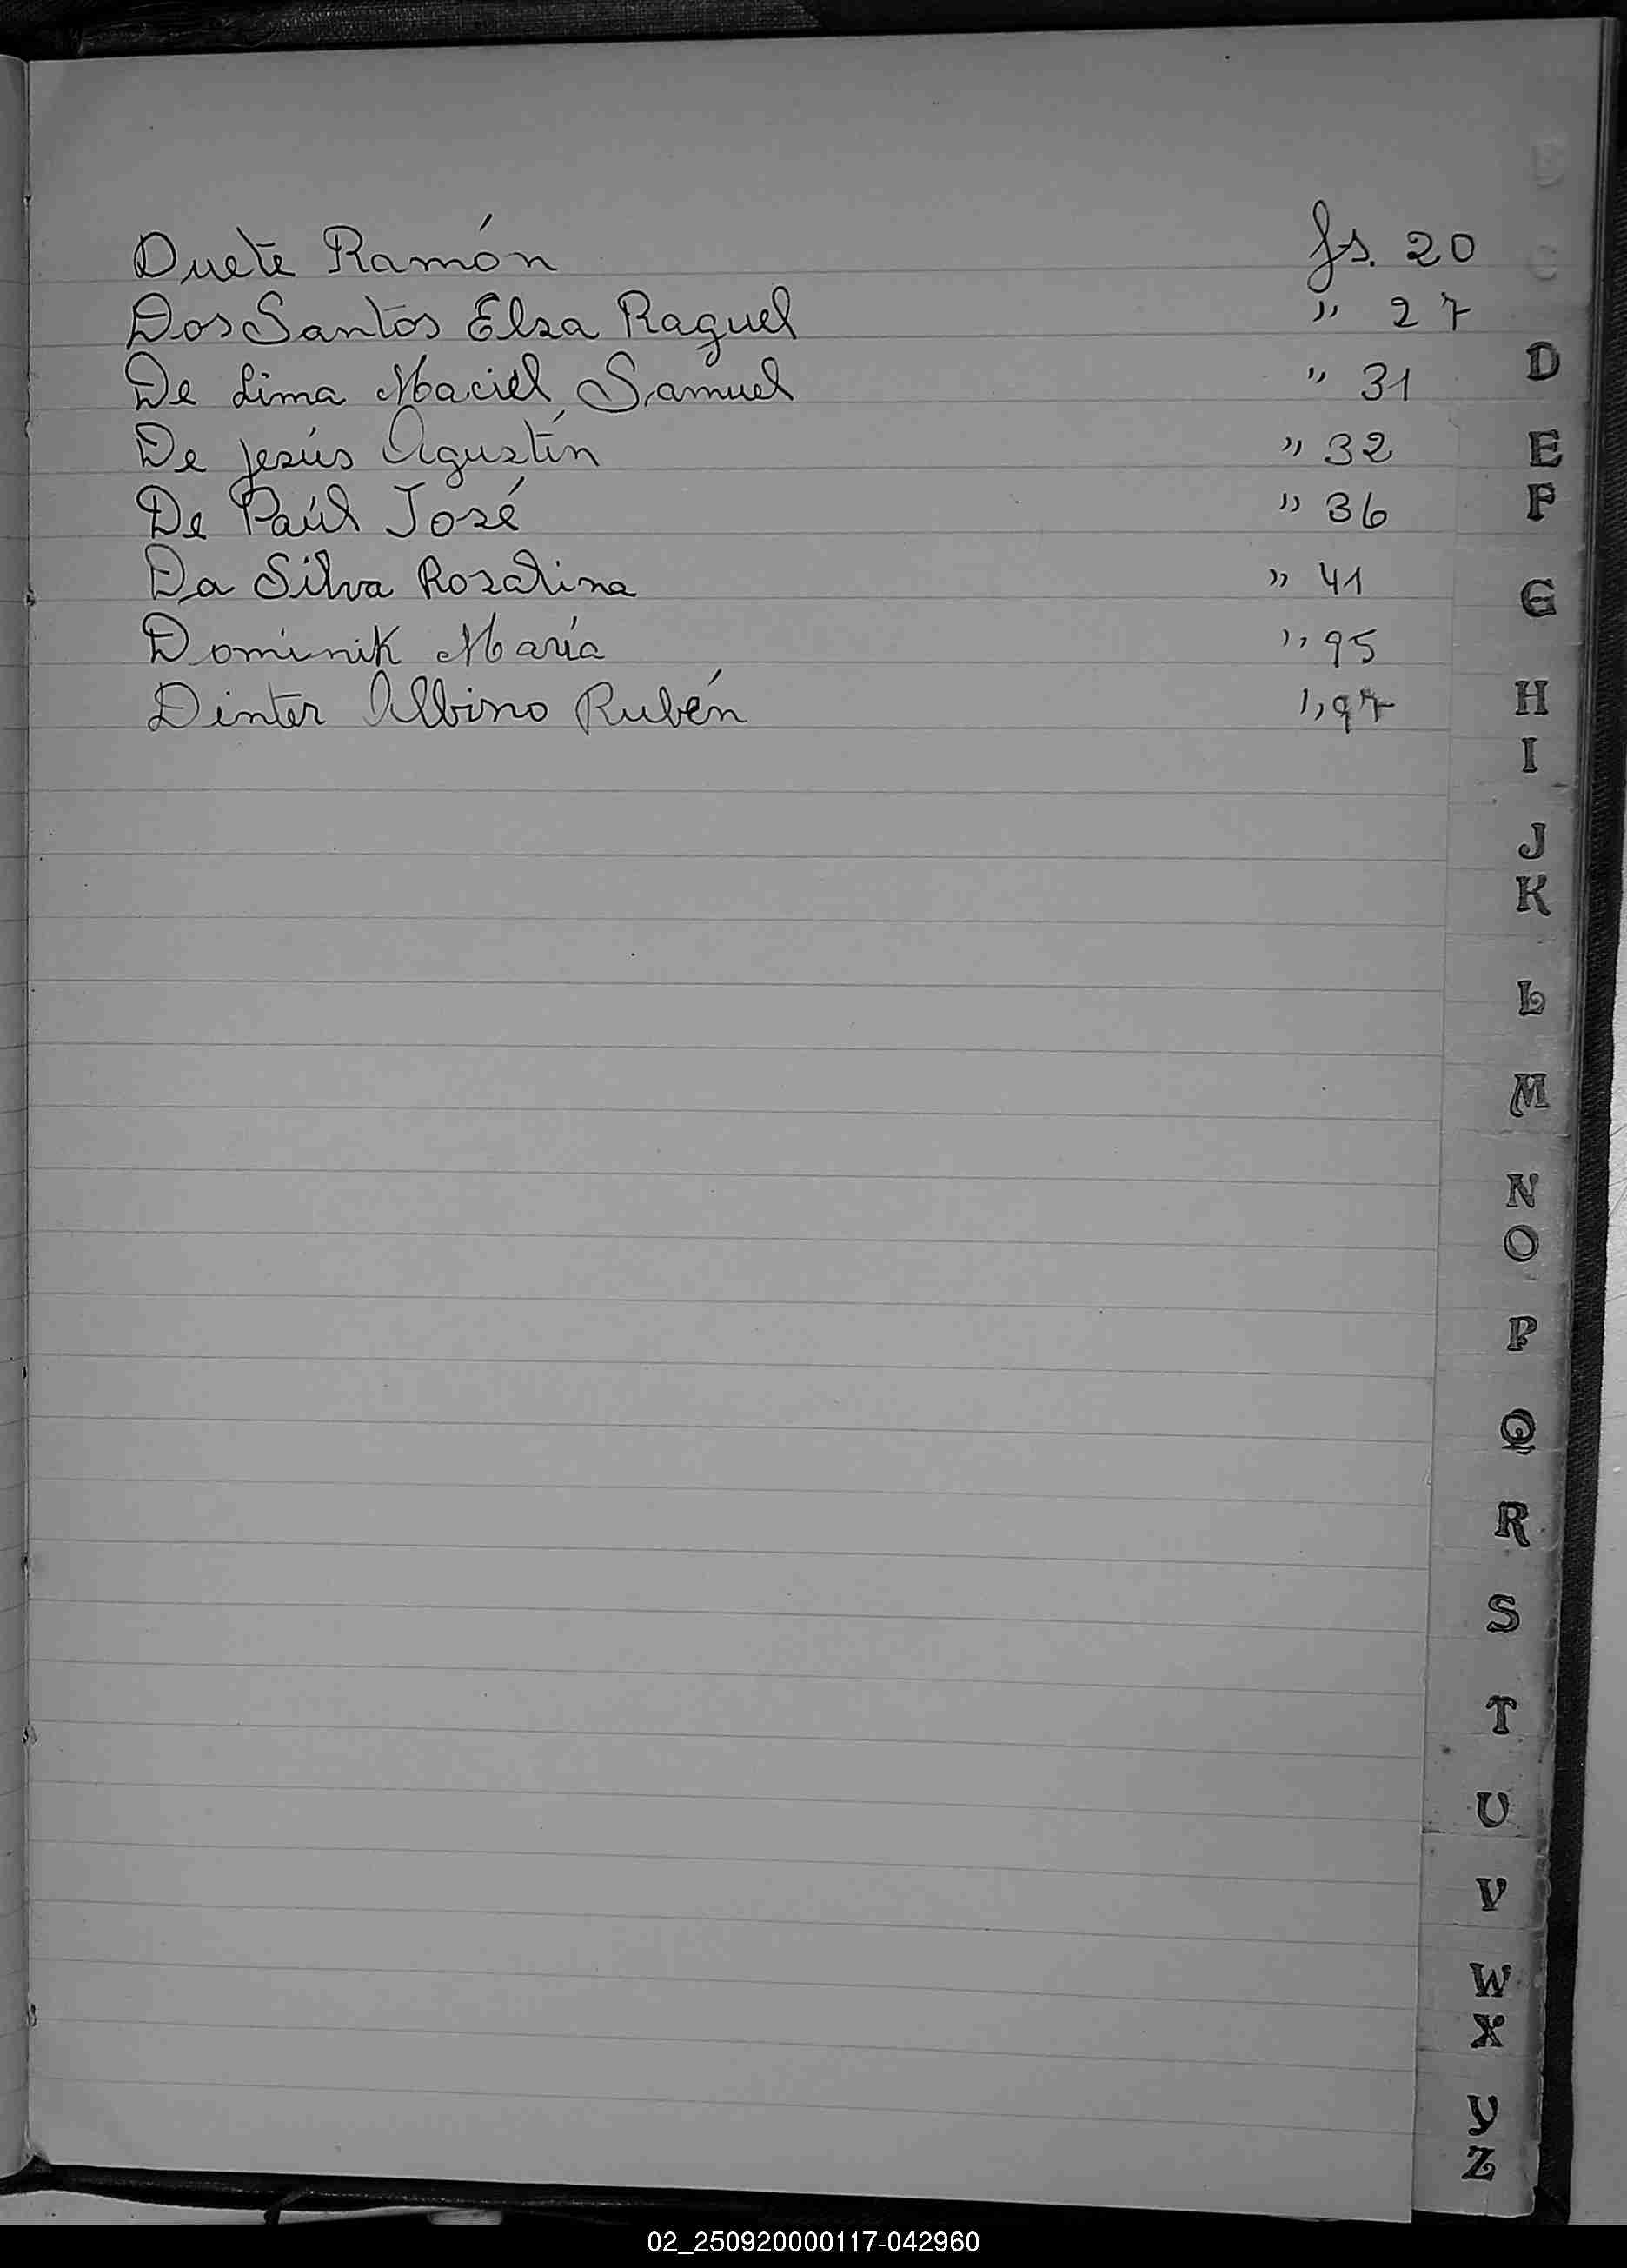 Duete Ramón fs. 20
Dos Santos Elsa Raquel " 27
De Lima Maciel Samuel " 31
De Jesús Agustín " 32
De Paúl José " 36
Da Silva Rosalina " 41
Dominik María " 95
Dinter Albino Rubén " 97
D
E
F
G
H
I
J
K
L
M
N
O
P
Q
R
S
T
U
V
W
X
Y
Z
02_250920000117-042960